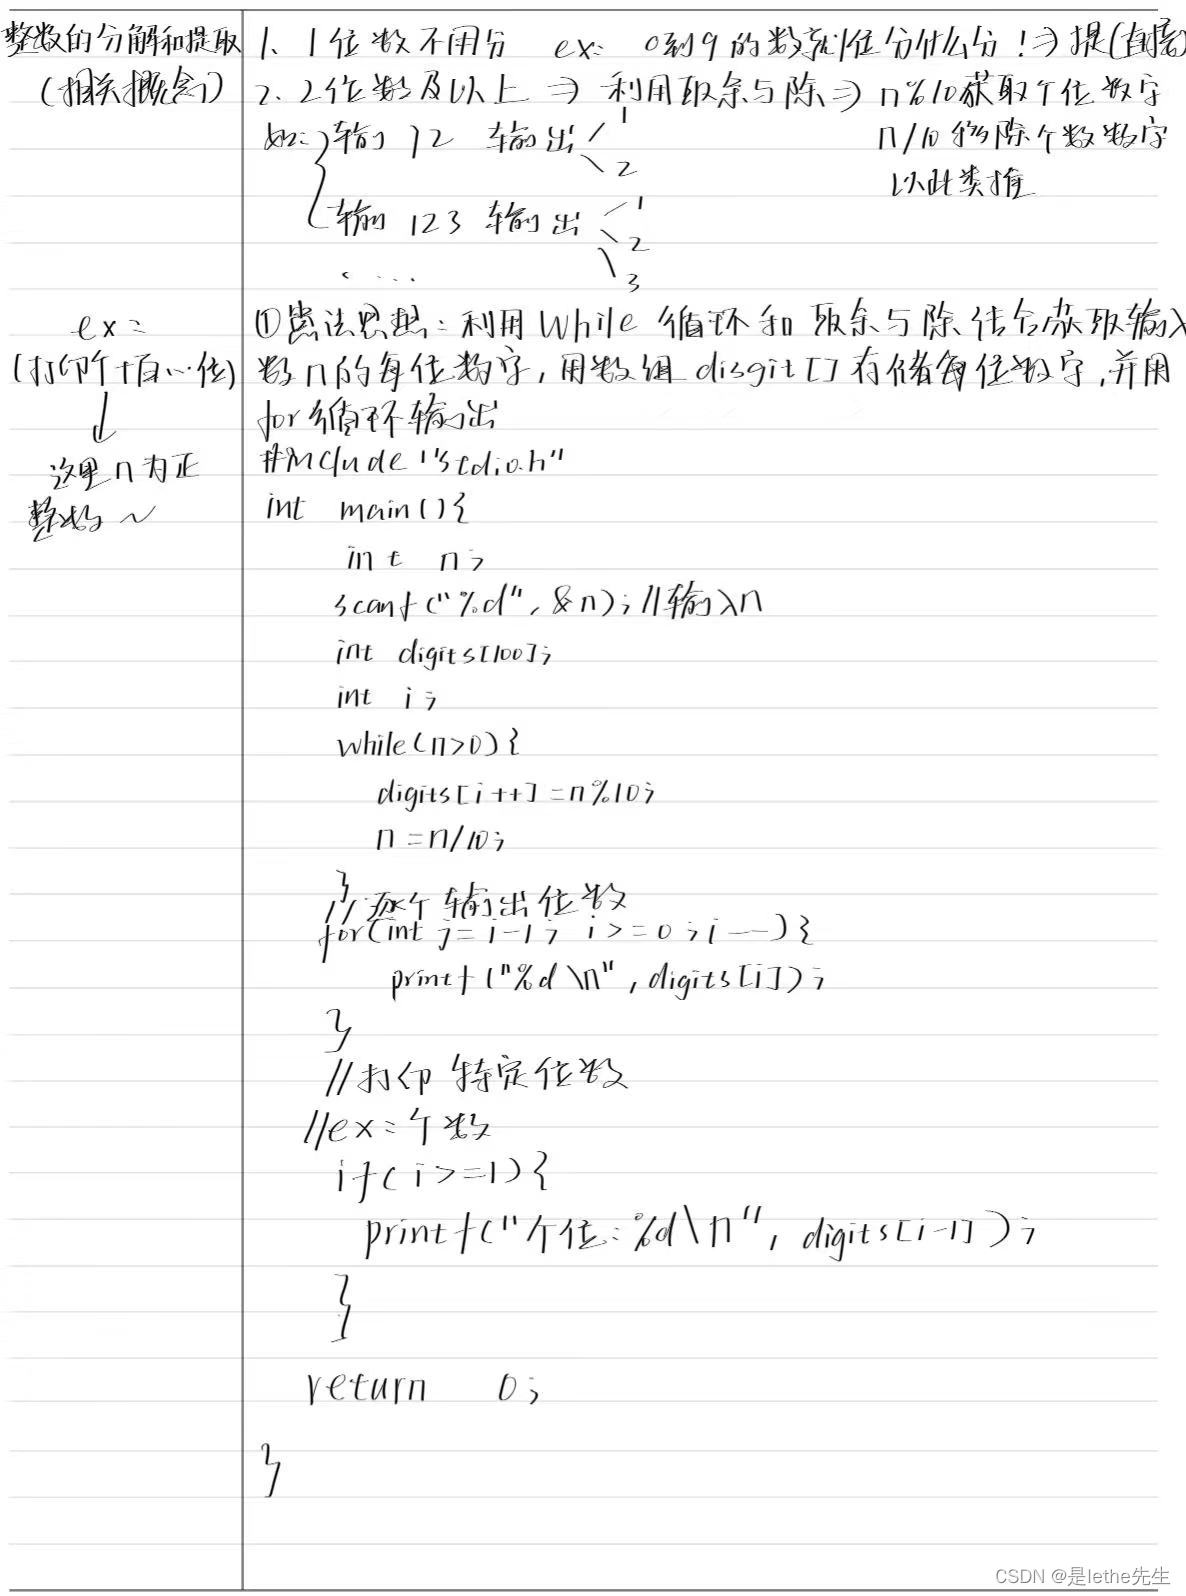 整数的分解和提取
(相关概念)
1、1位数不用分 ex: 0到9的数就1位分什么分!⇒提(直接)
2、2位数及以上 ⇒ 利用取余与除⇒ n%10获取个位数字
n/10移除个数数字
以此类推
如: 输入 12 输出 1
2
输入 123 输出 1
2
3
....
ex:
(打印个十百…位)
这里n为正
整数~
①算法思想:利用while循环和取余与除结合获取输入
数n的每位数字,用数组disgit[]存储每位数字,并用
for循环输出
#include "stdio.h"
int main(){
int n;
scanf("%d",&n);//输入n
int digits[100];
int i;
while(n>0){
digits[i++]=n%10;
n=n/10;
}
//逐个输出位数
for(int j=i-1; i>=0;i--){
printf("%d\n",digits[i]);
}
//打印特定位数
//ex:个数
if(i>=1){
printf("个位:%d\n", digits[i-1]);
}
return 0;
}
CSDN @是lethe先生